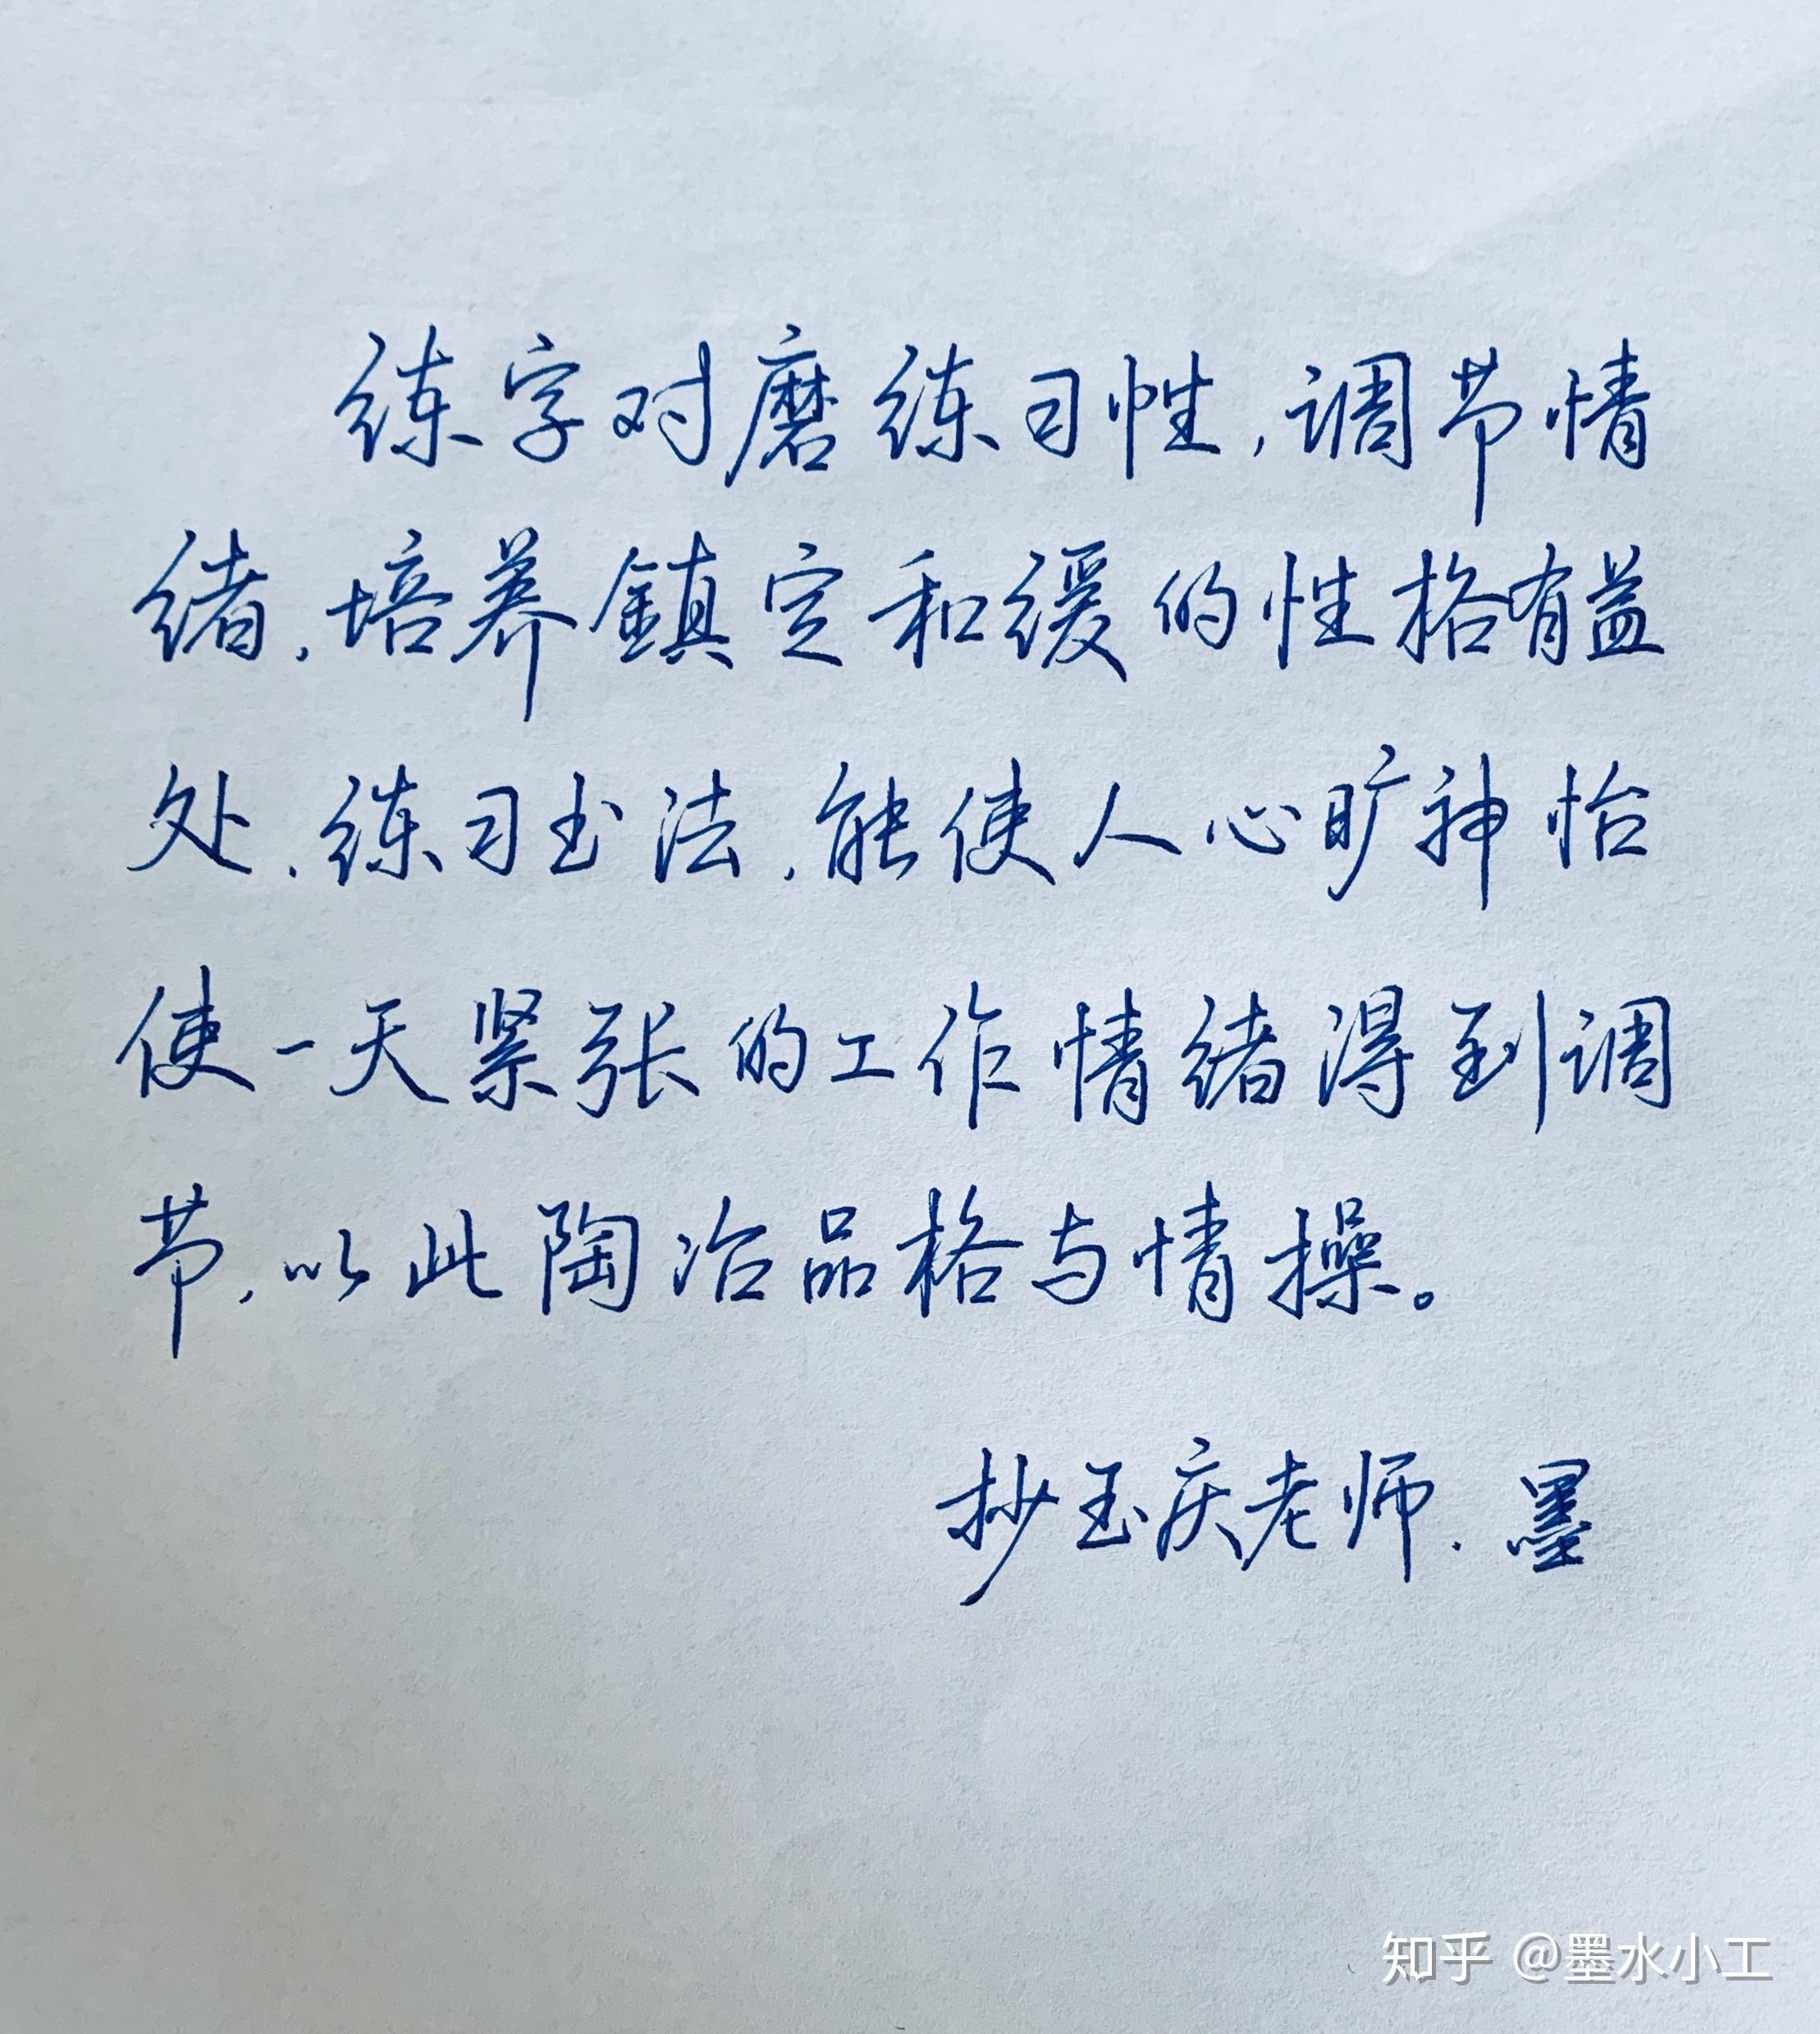 练字对磨练习性,调节情
绪.培养鎮定和缓的性格有益
处.练习书法.能使人心旷神怡
使一天紧张的工作情绪得到调
节.以此陶冶品格与情操。
抄玉庆老师.墨
知乎 @墨水小工